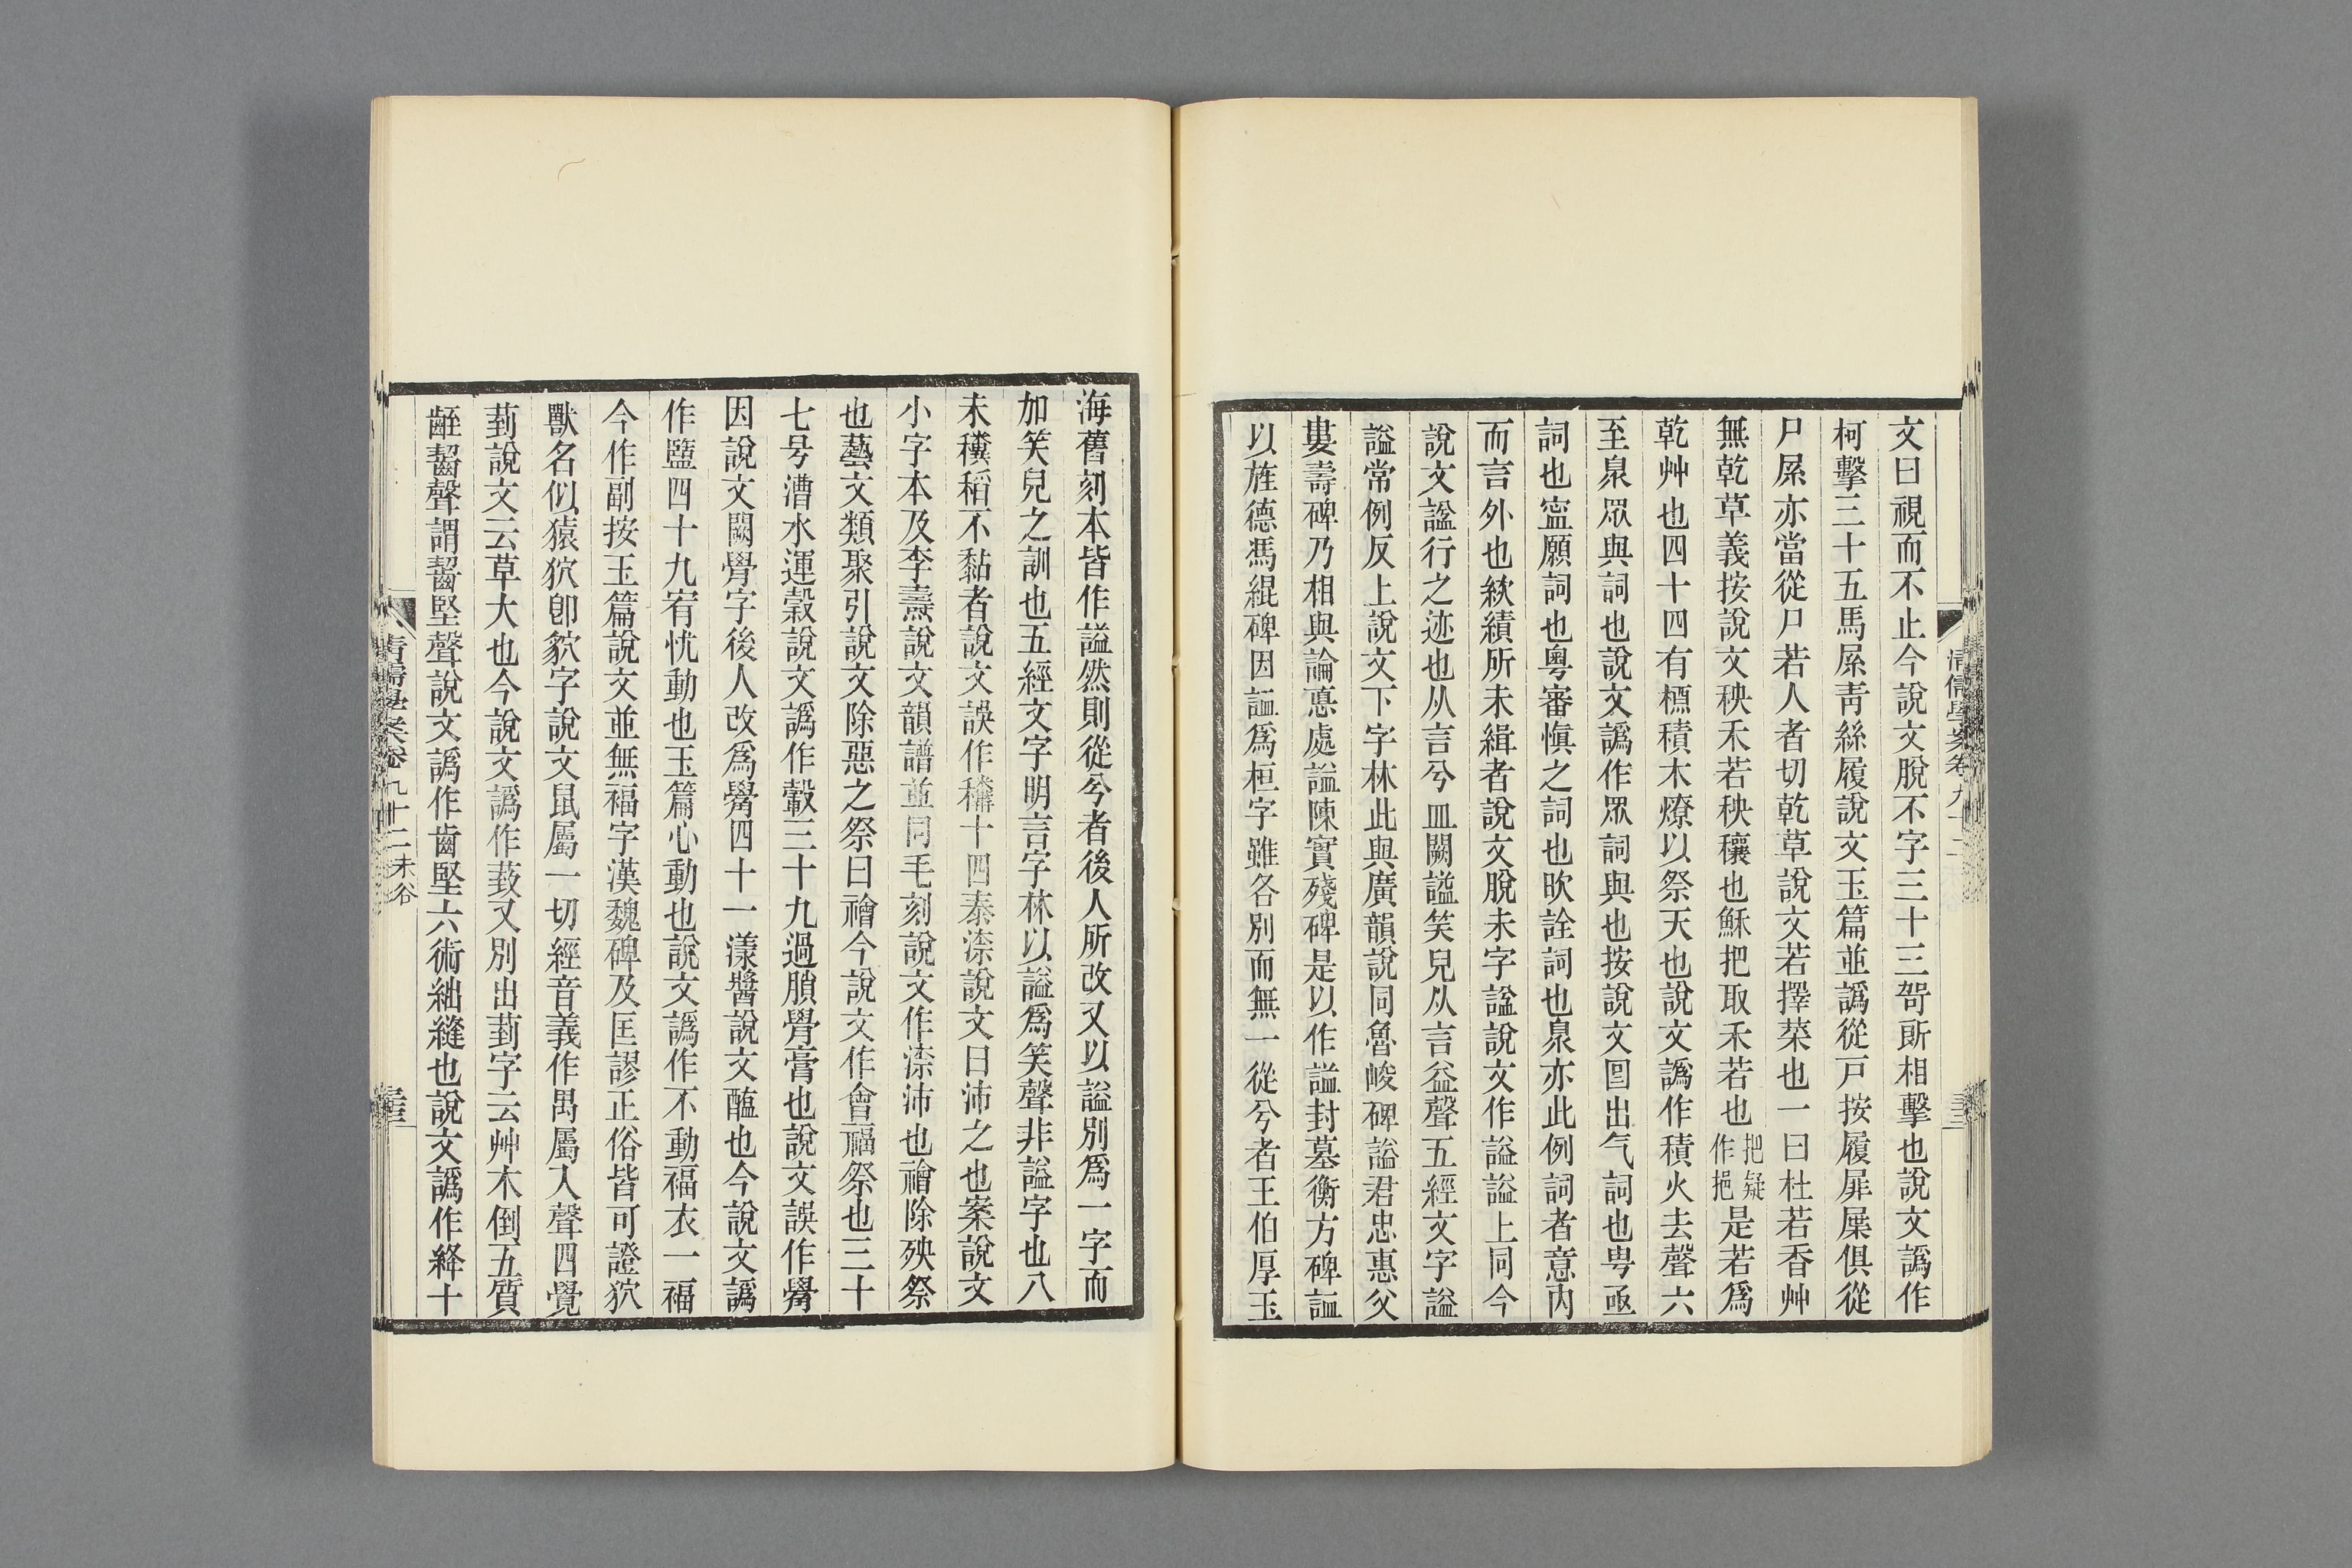 文曰視而不止今說文脫不字三十三哿㪽相擊也說文譌作
柯擊三十五馬㞏靑絲履說文玉篇並譌從戸按履屝屧俱從
尸㞏亦當從尸若人者切乾草說文若擇菜也一曰杜若香艸
無乾草義按說文秧禾若秧穰也穌把取禾若也把疑作挹是若爲
乾艸也四十四有槱積木燎以祭天也說文譌作積火去聲六
至臮眾與詞也說文譌作眾詞與也按說文囘出气詞也甹亟
詞也寍願詞也粵審愼之詞也欥詮詞也臮亦此例詞者意內
而言外也緂績所未緝者說文脫未字諡說文作謚謚上同今
說文諡行之迹也从言兮皿闕謚笑皃从言益聲五經文字謚
謚常例反上說文下字林此與廣韻說同魯峻碑謚君忠惠父
婁壽碑乃相與論悳處謚陳實殘碑是以作謚封墓衡方碑謚
以旌德馮緄碑因謚爲桓字雖各別而無一從兮者王伯厚玉
清儒學案卷九十二
海舊刻本皆作謚然則從兮者後人所改又以謚別爲一字而
加笑皃之訓也五經文字明言字林以謚爲笑聲非謚字也八
未穬稻不黏者說文誤作穬十四泰㴃說文曰沛之也案說文
小字本及李燾說文韻譜並同毛刻說文作㴃沛也禬除殃祭
也藝文類聚引說文除惡之祭曰禬今說文作會福祭也三十
七号漕水運穀說文譌作轂三十九過膭臋膏也說文誤作臋
因說文闕臋字後人改爲臋四十一漾醬說文醢也今說文譌
作鹽四十九宥忧動也玉篇心動也說文譌作不動福衣一福
今作副按玉篇說文並無福字漢魏碑及匡謬正俗皆可證狖
獸名似猿狖卽貁字說文鼠屬一切經音義作禺屬入聲四覺
菿說文云草大也今說文譌作菿又別出菿字云艸木倒五質
齷齧聲謂齧堅聲說文譌作齒堅六術絀縫也說文譌作絳十
清儒學案卷九十二未谷